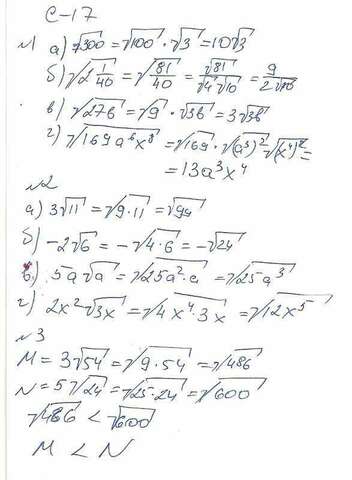 С-17
№1 а) √300 = √100 · √3 = 10√3
б) √2 1/40 = √81/40 = √81/√4√10 = 9/2√10
в) √27b = √9 · √3b = 3√3b
г) √169a⁶x⁸ = √169 · √(a³)² √(x⁴)² =
= 13a³x⁴
№2
а) 3√11 = √9·11 = √99
б) -2√6 = -√4·6 = -√24
в) 5a√a = √25a²·a = √25a³
г) 2x²√3x = √4x⁴·3x = √12x⁵
№3
M = 3√54 = √9·54 = √486
N = 5√24 = √25·24 = √600
√486 < √600
M < N